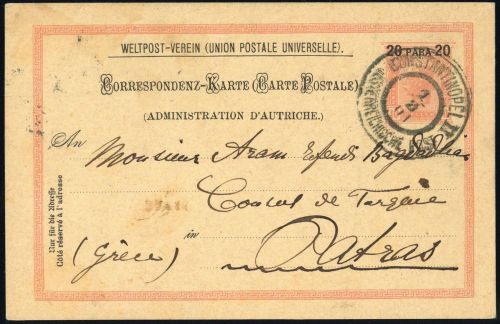 WELTPOST-VEREIN (UNION POSTALE UNIVERSELLE).
20 PARA 20
CONSTANTINOPEL II
CORRESPONDENZ-KARTE (CARTE POSTALE)
(ADMINISTRATION D'AUTRICHE).
An Monsieur Aram Effendi
Consul de Turquie
in Patras
(Grèce)
Nur für die Adresse
Côté réservé à l'adresse